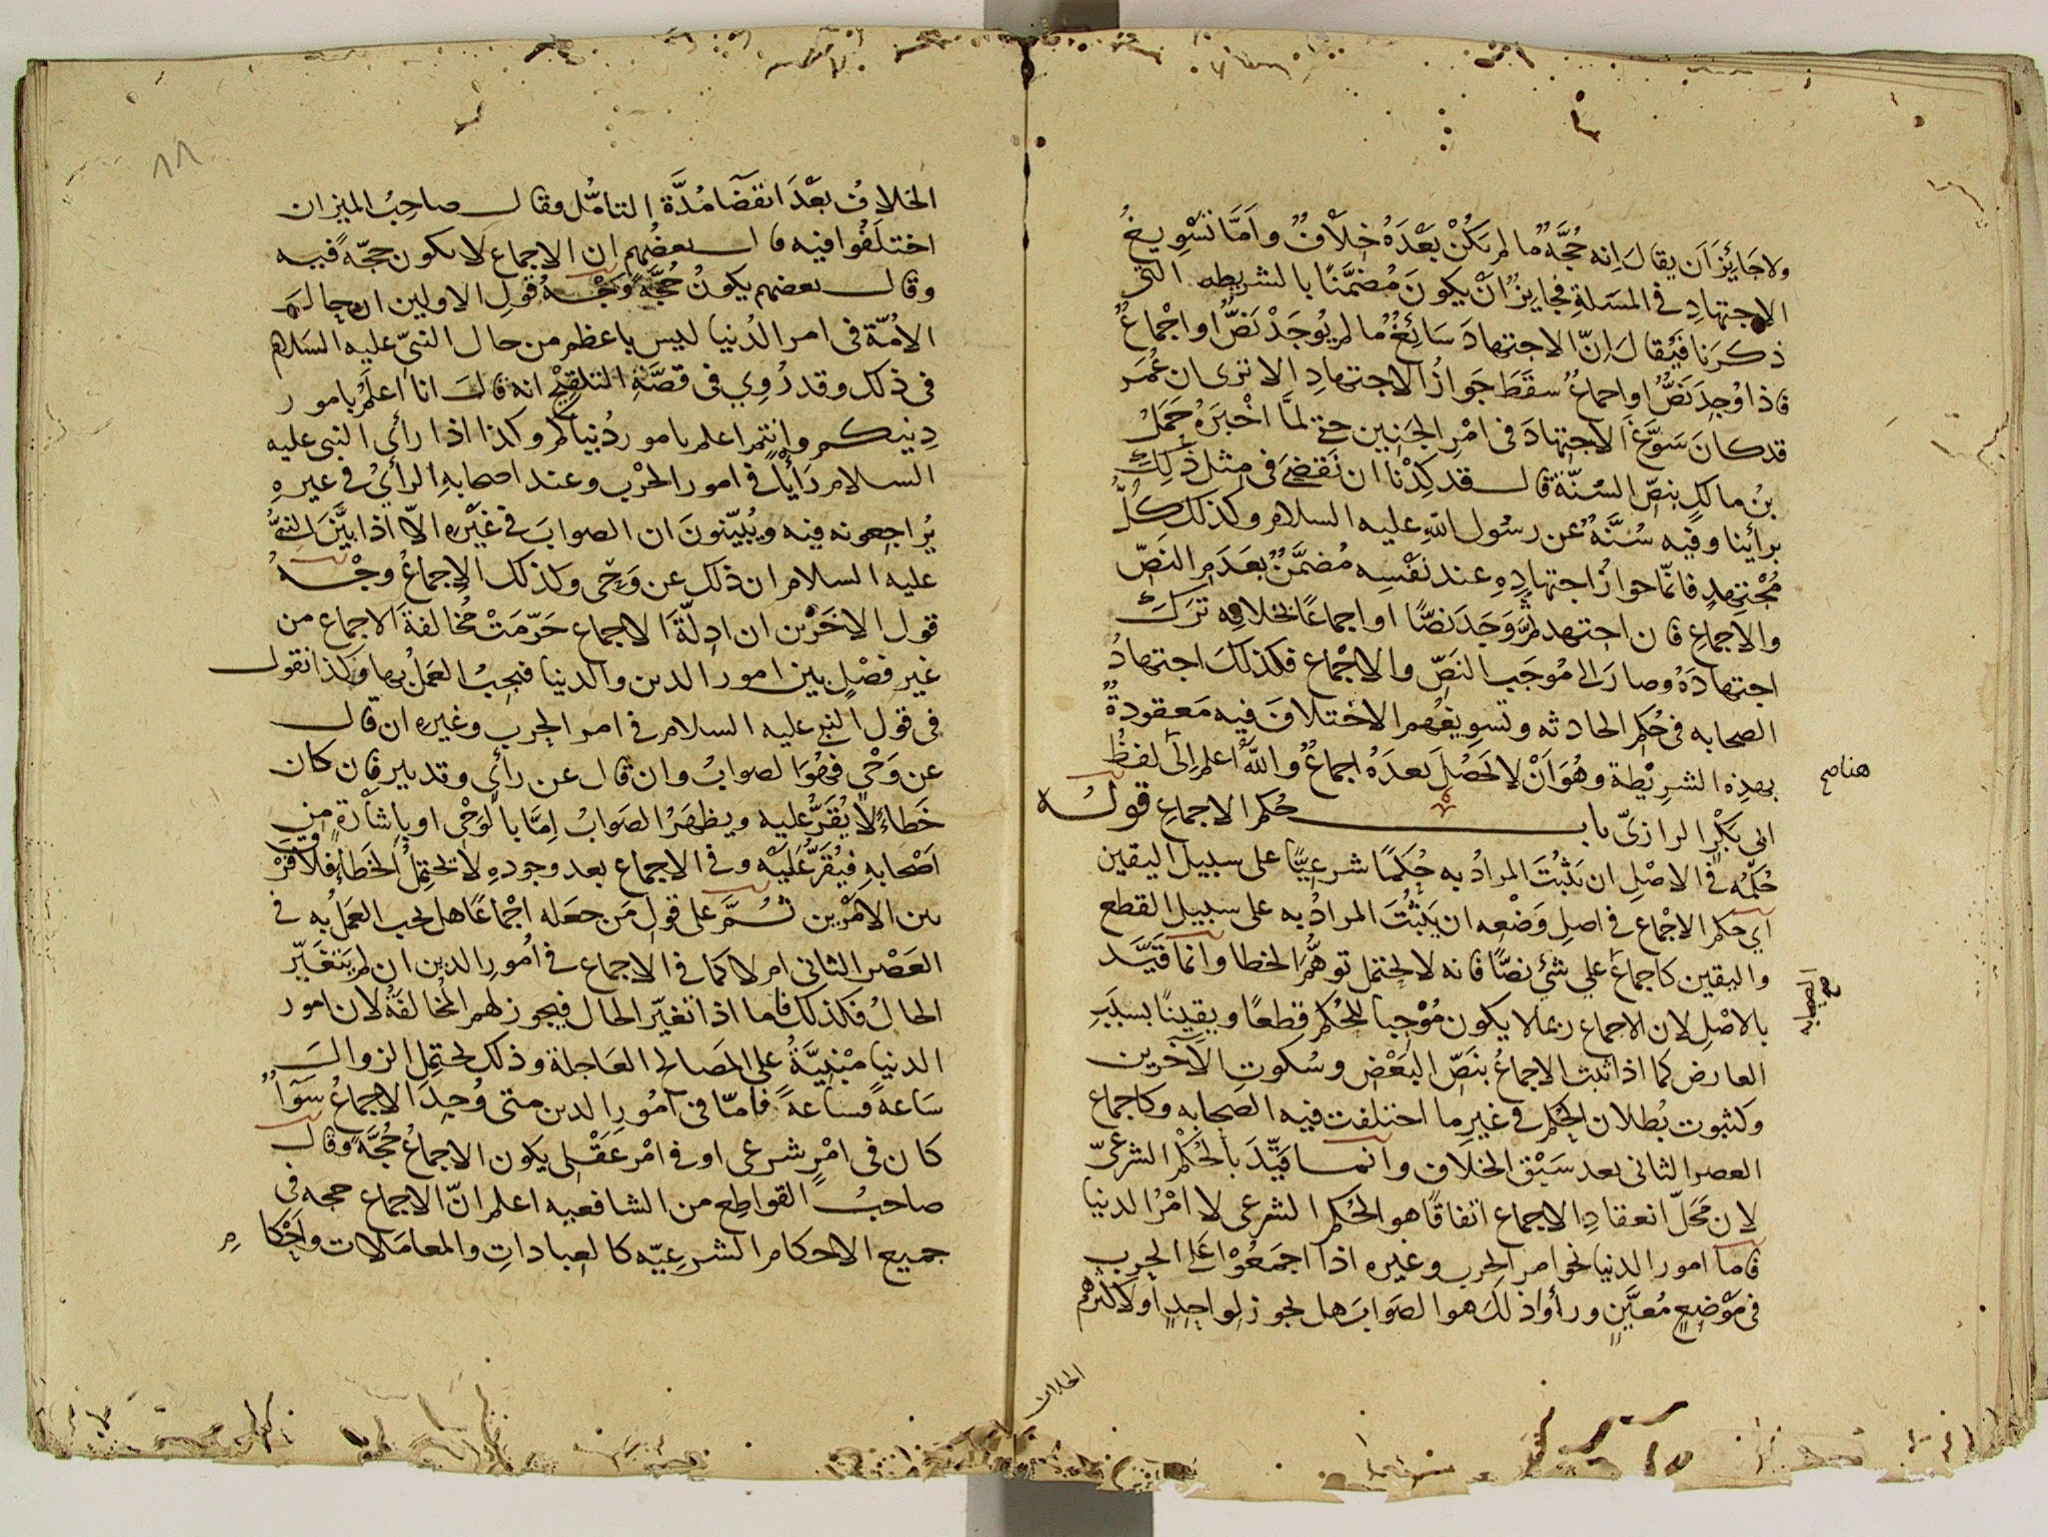 ولا جَائِزَ اَن يقالَ اِنه حُجَّةٌ ما لم يَكُنْ بَعْدَهُ خِلَافٌ واَمَّا تَسْوِيغُ
الاِجتهادِ في المسَلةِ فجايزٌ اَنْ يكونَ مُضَمَّنًا بالشريطه التي
ذكرنا فيُقالَ اِنّ الاجتهادَ سَائِغٌ ما لم يُوجَدْ نَصٌّ او اجْماعٌ
فاذا وُجِدَ نَصٌّ او اجماعٌ سقَطَ جَوازُ الاجتهادِ الا ترى ان عُمَر
قد كانَ سَوَّغَ الاجتهادَ في امْرِ الجَنِين حتى لمَّا اخْبَرَهُ حَمَلُ
بنُ مالكٍ بنصّ السُنّة قال قد كِدْنا ان نَقضيَ في مثل ذلك
برأينا وفيه سُنَّةٌ عن رسُول الله عليه السلام وكذلك كُلُّ
مُجْتهِدٍ فانّما جوازُ اجتهادِهِ عند نَفْسِه مُضَمَّنٌ بعَدَمِ النَصّ
والاجماعِ فان اجتهد ثمَّ وَجَدَ نَصًّا او اجماعًا بخلافِه تَرَكَ
اجتهادَهُ وصارَ الى مُوجَبِ النَصّ والاجْماع فكذلكَ اجتهادُ
الصحابه في حُكم الحادثه وتسوِيغُهم الاختلافَ فيه مَعقودةٌ
بهذِه الشرِيْطة وهُوَ اَنْ لا يَحْصُلَ بعدَهُ اجماعٌ واللهُ اعلم الى لفظُ
ابي بَكْرٍ الرازيّ باب حُكم الاجماعِ قولُه
حُكمُه في الاصْلِ ان يَثْبُتَ المرادُ به حُكمًا شرعِيًّا على سبيل اليقين
اَي حكم الاجْماع في اصلِ وَضْعِه ان يَثْبُتَ المرادُ به على سبيل القطع
واليقين كاجماعِ علي شيءٍ نصًّا فانه لا يحتمل توهُّمَ الخطا وانما قَيَّد
بالاصْلِ لان الاجماع ربما لا يكون مُوْجِبا للحُكم قطعًا ويقينًا بسَبَبِ
العارض كما اذا ثبت الاجماعُ بنَصّ البَعْض وسُكوتِ الآخَرين
وكثبوت بُطلان الحُكم في غيرِ ما اختلفت فيه الصحابه وكاجماع
العصر الثاني بعد سَبْق الخلاف وانما قيِّدَ بالحُكم الشرعيّ
لان مَحَلّ انعقادِ الاجماع اتفاقًا هو الحُكم الشرعي لا امْرُ الدنيا
فاما امور الدنيا نحو امرِ الحرب وغيره اذا اجمَعُوْا عَلى الحرب
في مَوْضِعٍ مُعيَّنٍ ورأوا ذلكَ هو الصَوابَ هل يجوز لواحِدٍ او لاكثرهم
هنا صح
الصحابه
صح
الخلاف
٨٨
الخلافُ بَعْدَ انقضَا مُدَّة التامُّل وقال صاحِبُ الميزان
اختلَفُوا فيه قال بعضُهم ان الاجماع لا يكون حجّةً فيه
وقال بعضهم يكونُ حُجَّةً وَجْهُ قولِ الاولين ان حالَ
الاُمّة في امر الدُنيا ليس باعظم من حال النبيّ عليه السَلام
في ذلك وقد رُوِي في قصَّةِ التلقِيْحِ انه قالَ انا اعلَمُ بامور
دِينكم وانتم اعلم بامور دُنياكم وكذا اذا رأى النبي عليه
السلام رَأيًا في امور الحرْب وعند اصحابِهِ الرأيُ في غيرِهِ
يُراجعونه فيه ويُبيّنونَ ان الصوابَ في غَيْرِه الاّ اذا بيَّنَ النبيُّ
عليه السلام ان ذلك عن وَحْي وكذلك الاِجماعُ وَجْهُ
قول الاخَرْين ان ادلّةَ الاجماع حَرّمَتْ مُخالفةَ الاجماع من
غير فصْلٍ بين امور الدين والدنيا فيجبُ العَمَلُ بها وكذا نقول
في قول النبي عليه السلام في امر الحرب وغيره ان قال
عن وَحْيٍ فهُوَ الصوابُ وان قال عن رأيٍ وتدبير فان كان
خَطاءً لا يُقَرُّ عليه ويظهَرُ الصَوابُ اِمَّا بالوَحْي او باشارَةٍ مِن
اصْحابِهِ فيُقَرُّ عَلَيْه وفي الاجماع بعد وجودِهِ لا يحتمِلُ الخطاءَ فلا فَرْقَ
بين الامْرَين ثُمَّ على قول مَن جعَله اجْماعًا هل يجب العَمَلُ به في
العَصْر الثاني ام لا كما في الاجماع في اُمُورِ الدين ان لم يَتغَيّر
الحالُ فكذلك فاما اذا تغيّر الحال فيجوز لهم المُخالفَةُ لان امور
الدنيا مَبْنِيَّةٌ على المصَالح العَاجلة وذلك يحتمل الزوالَ
سَاعةً فساعةً فامّا في اُمُورِ الدين متى وُجِدَ الاجماعُ سَوَاءٌ
كان في امْرٍ شرعي او في امْرٍ عَقْلي يكون الاجماعُ حُجَّةً وقال
صاحبُ القواطع من الشافعيه اعلم انّ الاجماع حجه في
جميع الاحكام الشرعِيّه كالعباداتِ والمعامَلات واَحْكام